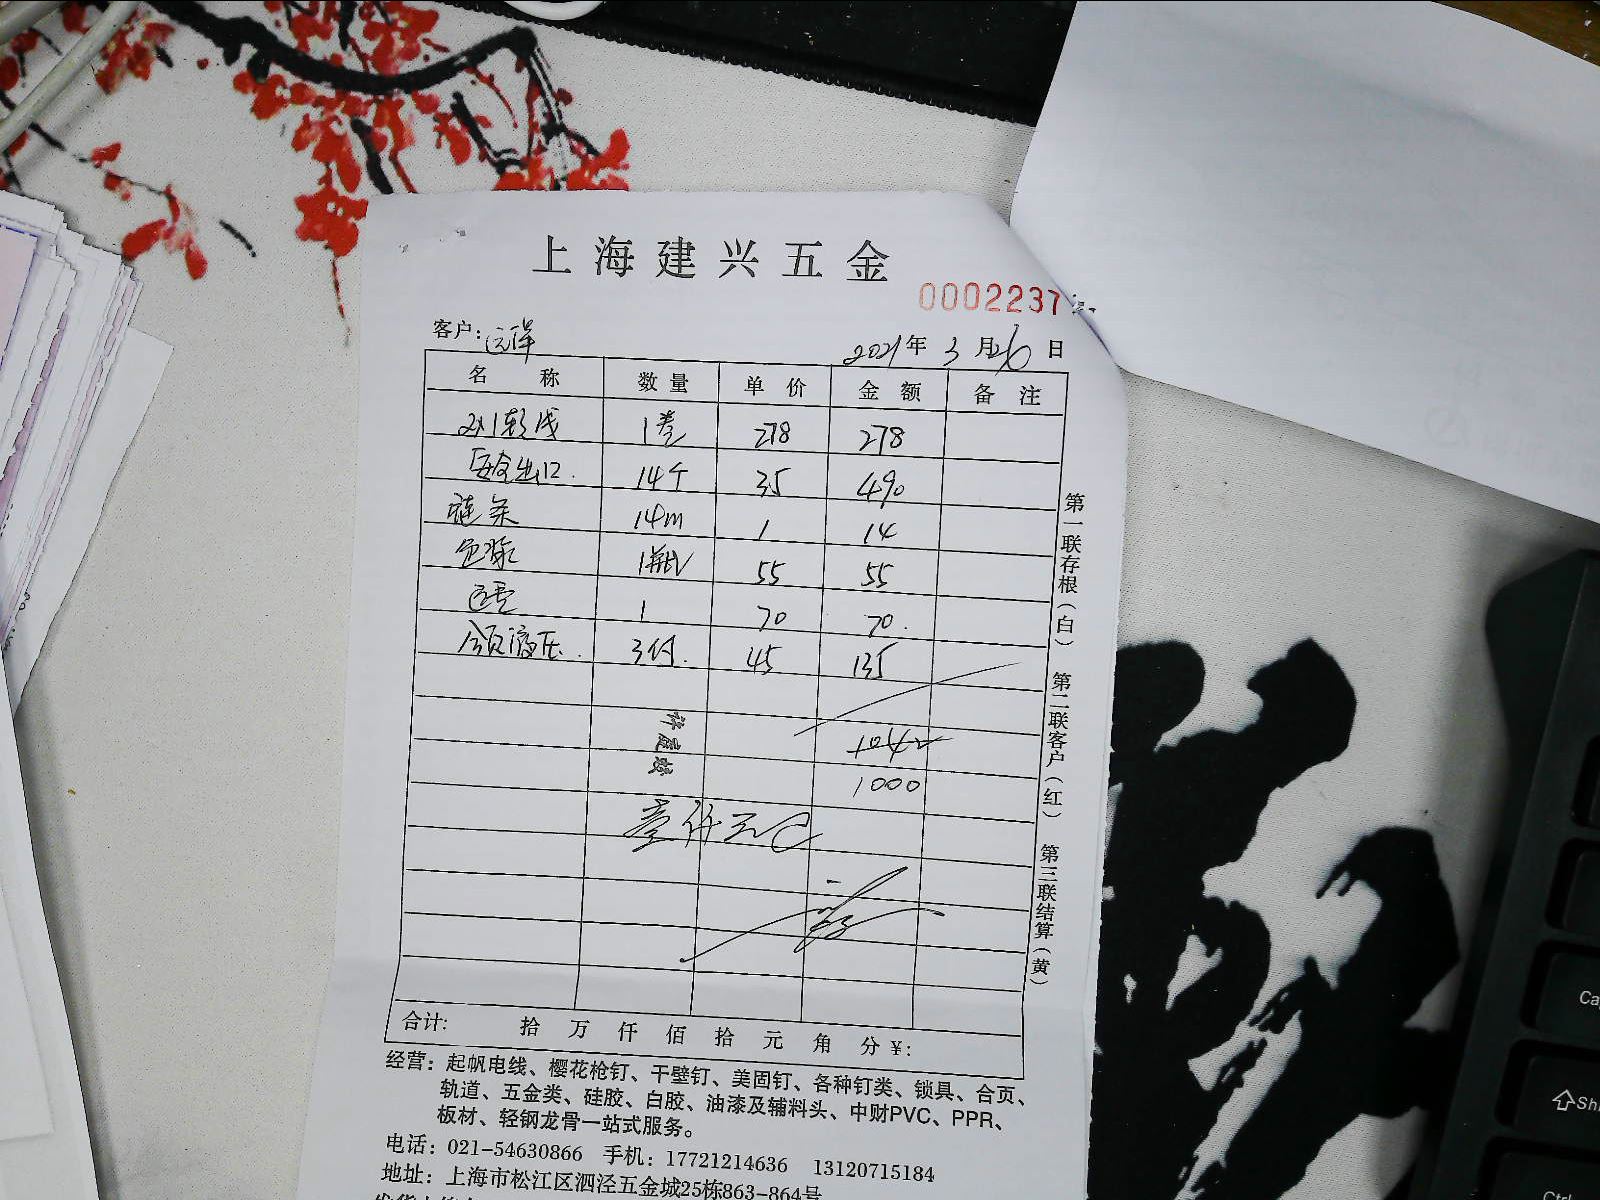 上海建兴五金
0002237
客户: 远洋 2021年3月26日
名称 数量 单价 金额 备注
2×1软线 1卷 278 278
安全出口 14个 35 490
链条 14m 1 14
色浆 1瓶 55 55
运费 1 70 70
135 3付 45
1042
1000
壹仟元
合计: 拾万仟佰拾元角分¥:
第一联存根(白) 第二联客户(红) 第三联结算(黄)
经营: 起帆电线、樱花枪钉、干壁钉、美固钉、各种钉类、锁具、合页、
轨道、五金类、硅胶、白胶、油漆及辅料头、中财PVC、PPR、
板材、轻钢龙骨一站式服务。
电话: 021-54630866 手机: 17721214636 13120715184
地址: 上海市松江区泗泾五金城25栋863-864号
Ca
Shi
Ctrl